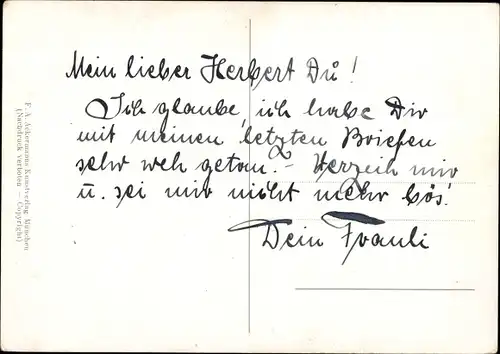 Mein lieber Herbert Du!
Ich glaube, ich habe Dir
mit meinen letzten Briefen
sehr weh getan. – Verzeih mir
u. sei mir nicht mehr bös!
Dein Frauli
F. A. Ackermanns Kunstverlag München
(Nachdruck verboten — Copyright)